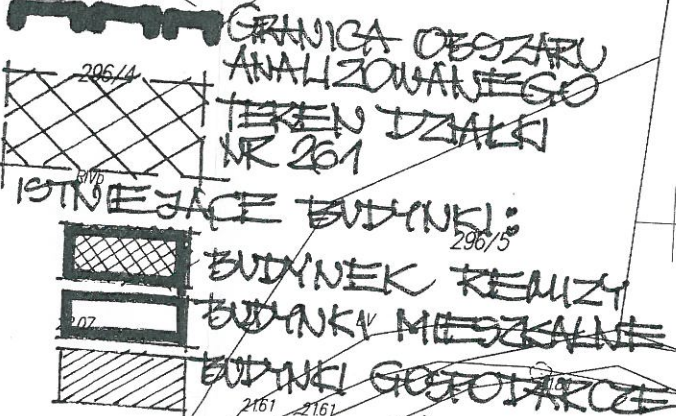 GRANICA OBSZARU
ANALIZOWANEGO
296/4
TEREN DZIAŁKI
NR 261
RIVb
ISTNIEJĄCE BUDYNKI:
296/5
BUDYNEK REMIZY
BUDYNKI MIESZKALNE
BUDYNKI GOSPODARCZE
2161 2161